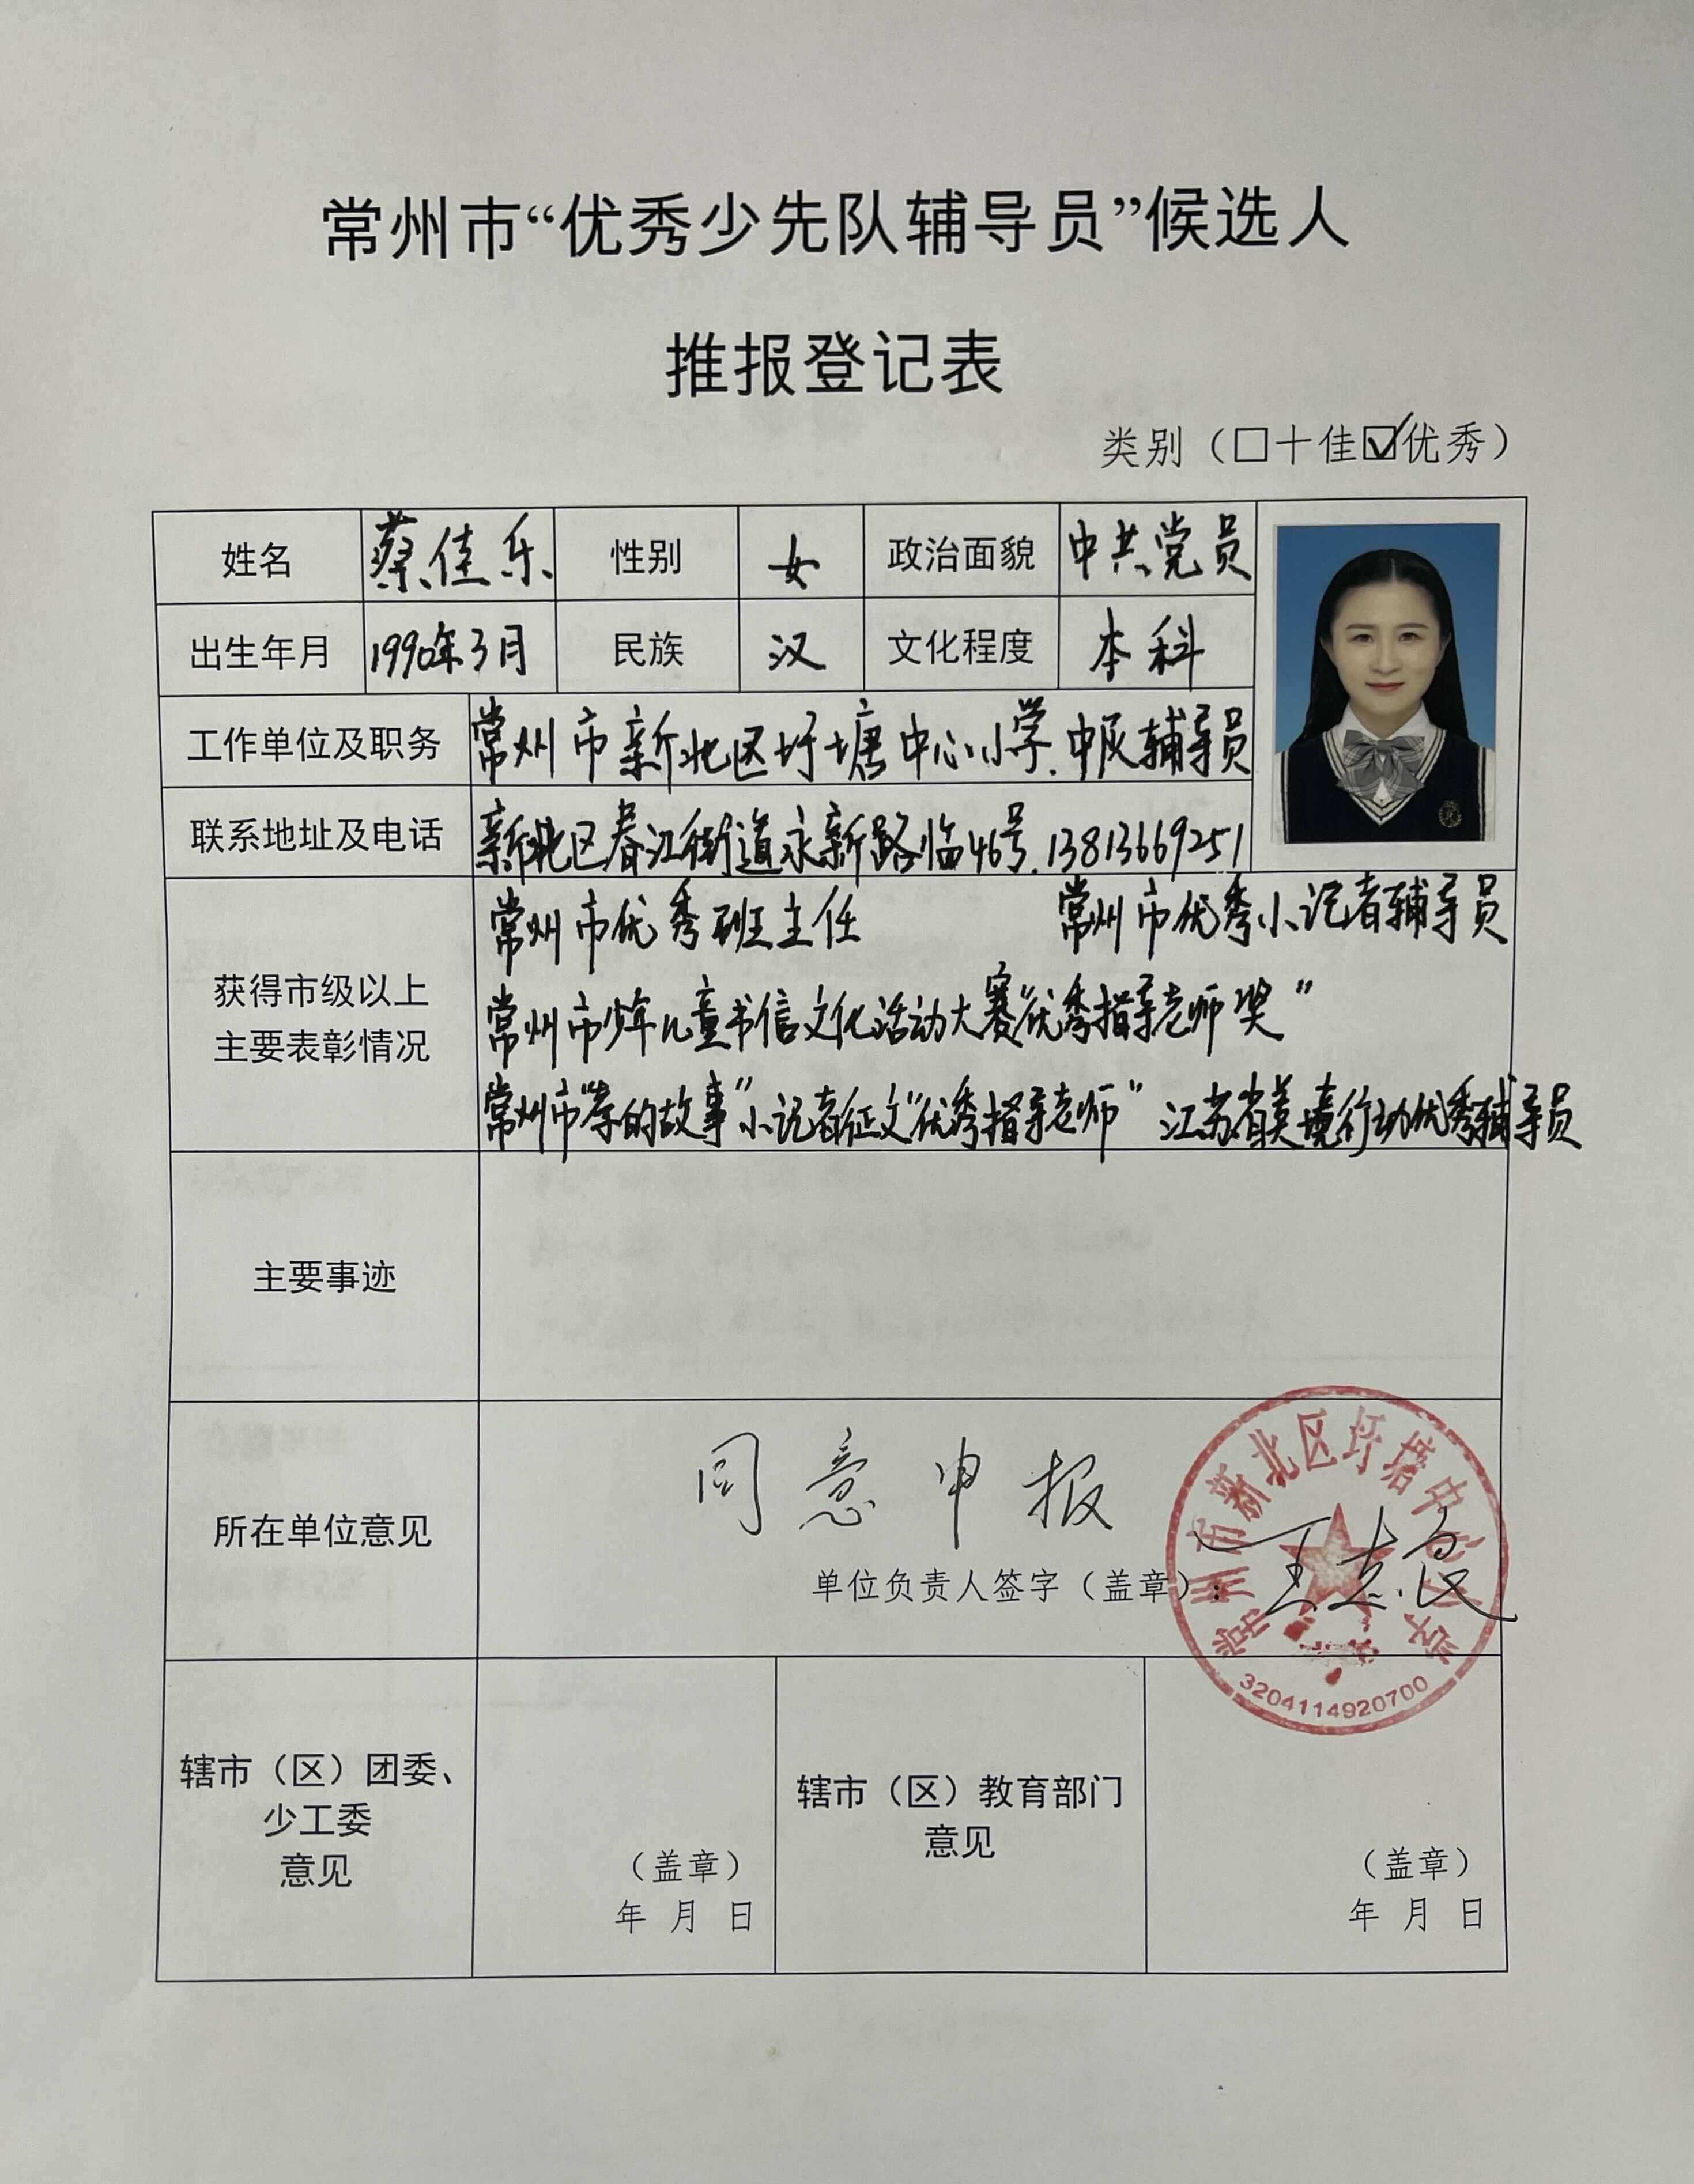 常州市“优秀少先队辅导员”候选人
推报登记表
类别（□十佳☑优秀）
姓名 蔡佳乐 性别 女 政治面貌 中共党员
出生年月 1990年3月 民族 汉 文化程度 本科
工作单位及职务 常州市新北区圩塘中心小学.中队辅导员
联系地址及电话 新北区春江街道永新路临46号.13813669251
获得市级以上
主要表彰情况
常州市优秀班主任 常州市优秀小记者辅导员
常州市少年儿童书信文化活动大赛“优秀指导老师奖”
常州市“孝的故事”小记者征文“优秀指导老师” 江苏省美境行动优秀辅导员
主要事迹
所在单位意见
同意申报
单位负责人签字（盖章）：
常州市新北区圩塘中心小学
3204114920700
辖市（区）团委、
少工委
意见
（盖章）
年 月 日
辖市（区）教育部门
意见
（盖章）
年 月 日